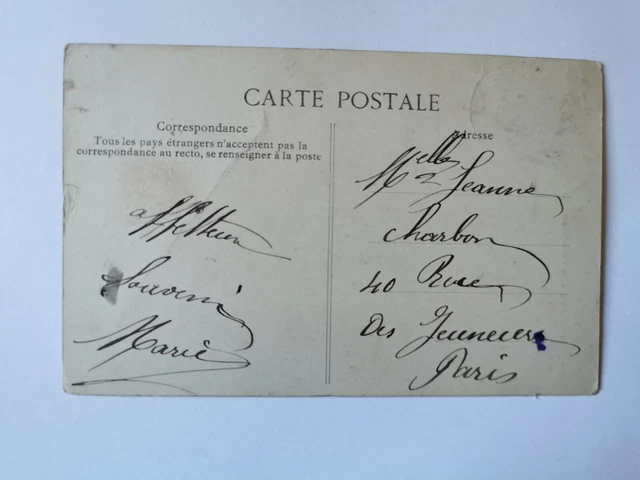 CARTE POSTALE
Correspondance
Tous les pays étrangers n'acceptent pas la
correspondance au recto, se renseigner à la poste
affectueux
Souvenir
Marie
Adresse
Melle Jeanne
Charbon
40 Rue
des Jeuneurs
Paris